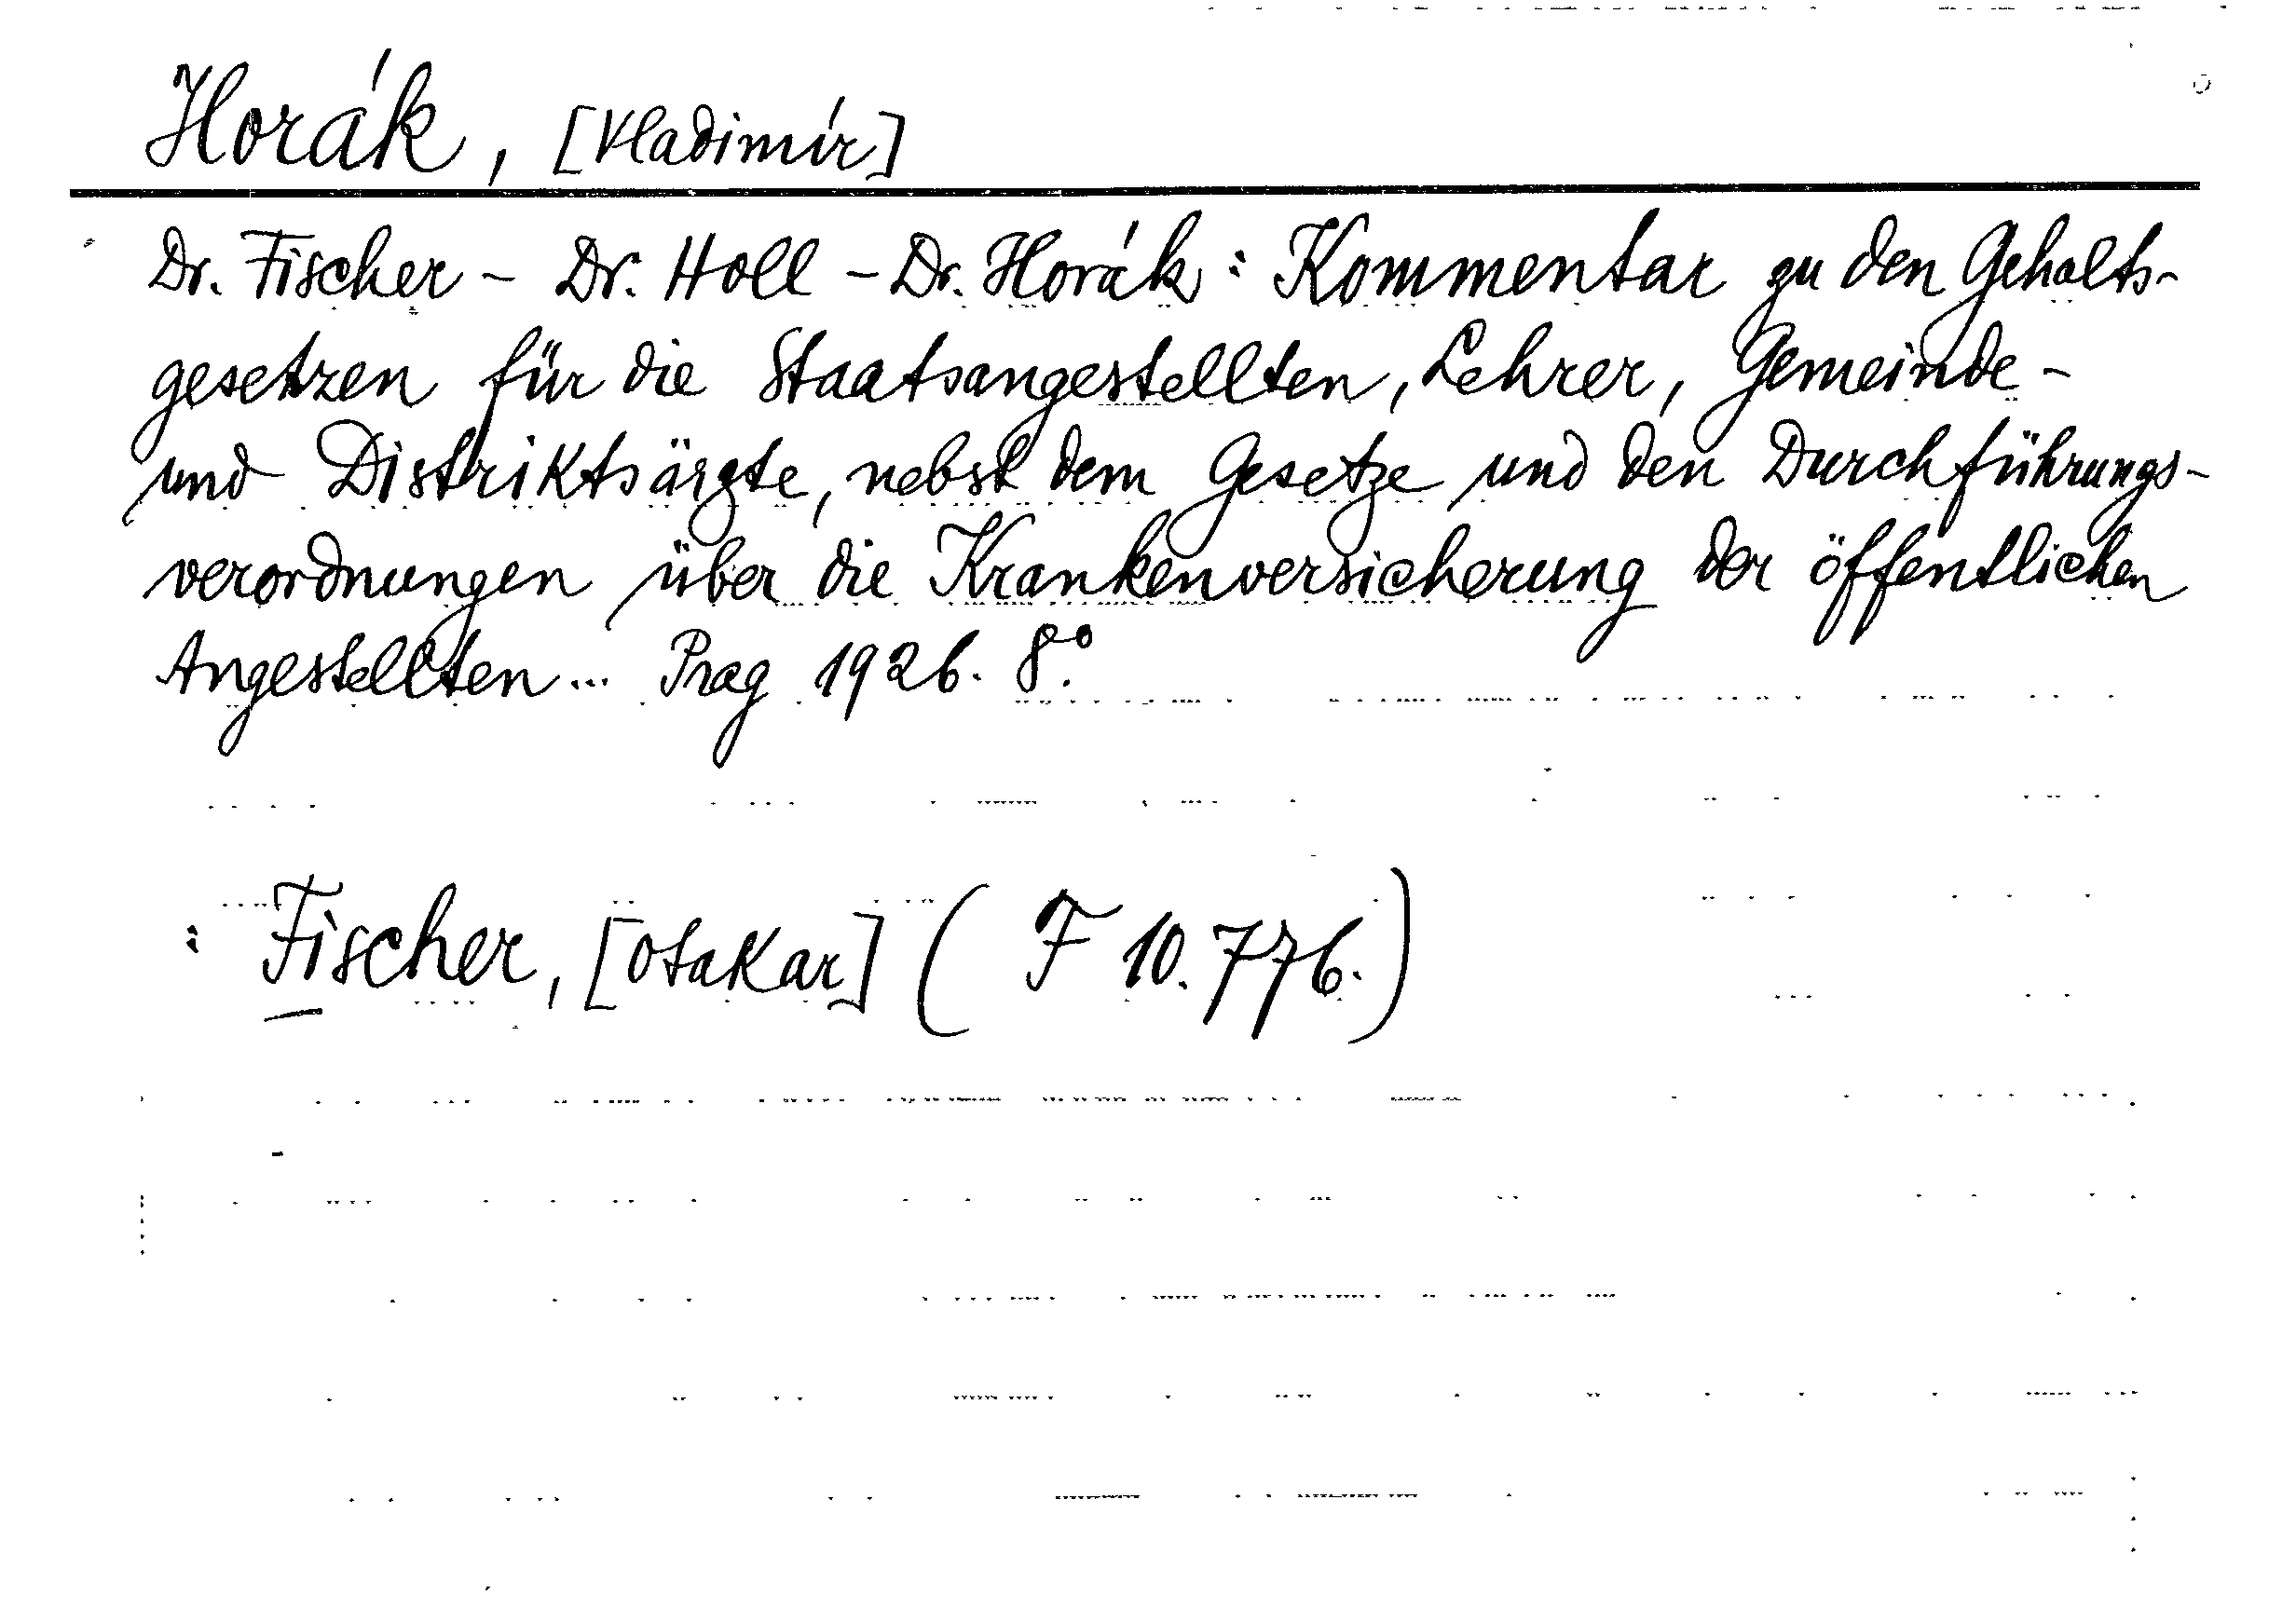 Horák, [Vladimír]
Dr. Fischer - Dr. Holl - Dr. Horák: Kommentar zu den Gehalts-
gesetzen für die Staatsangestellten, Lehrer, Gemeinde-
und Distriktsärzte, nebst dem Gesetze und den Durchführungs-
verordnungen über die Krankenversicherung der öffentlichen
Angestellten... Prag 1926. 8°.
: Fischer, [Otakar] ( F 10.776.)